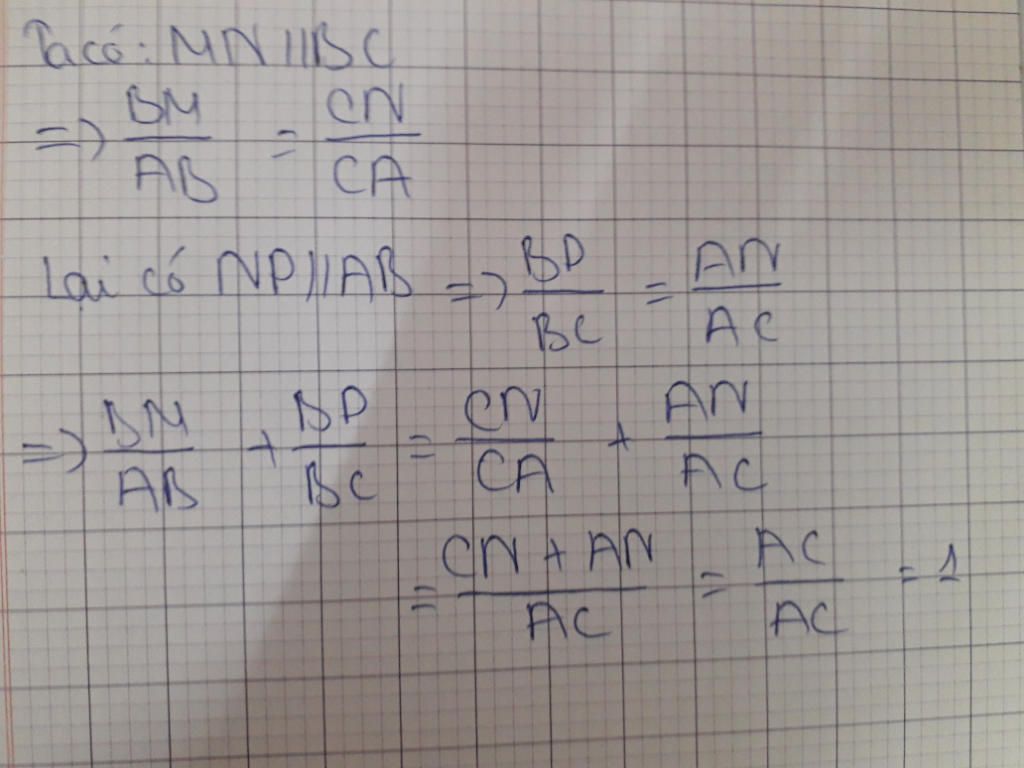 Ta có: MN//BC
=> BM/AB = CN/CA
Lại có NP//AB => BP/BC = AN/AC
=> BM/AB + BP/BC = CN/CA + AN/AC
= CN + AN/AC = AC/AC = 1